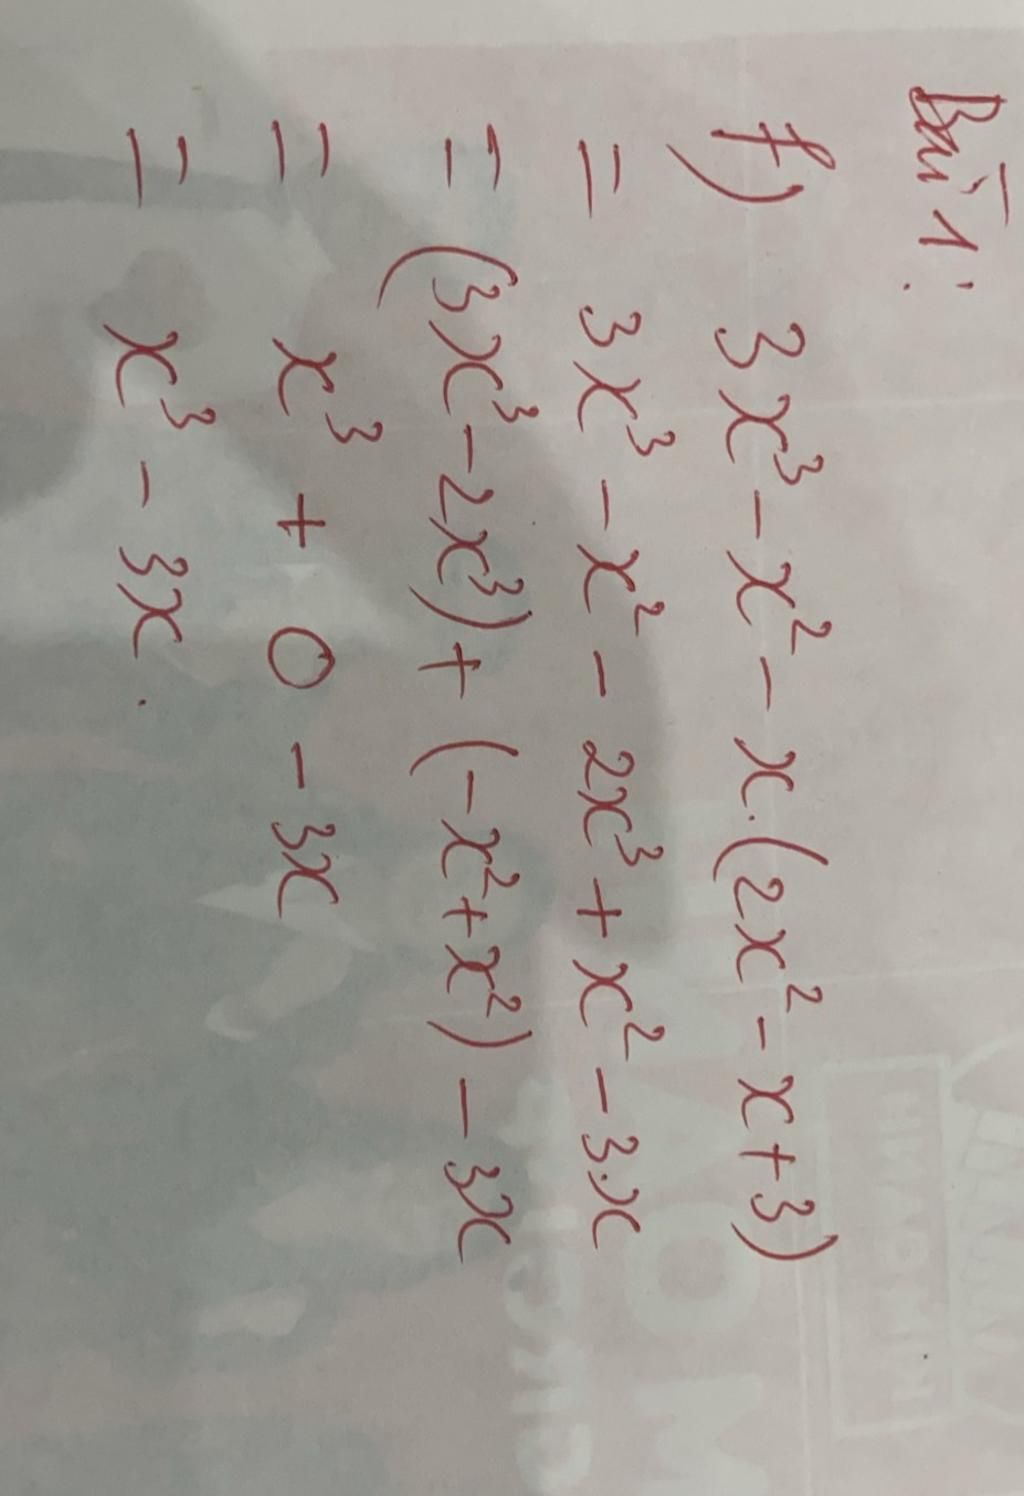 Bài 1:
f) 3x³ - x² - x.(2x² - x + 3)
= 3x³ - x² - 2x³ + x² - 3.x
= (3x³ - 2x³) + (-x² + x²) - 3x
= x³ + 0 - 3x
= x³ - 3x.